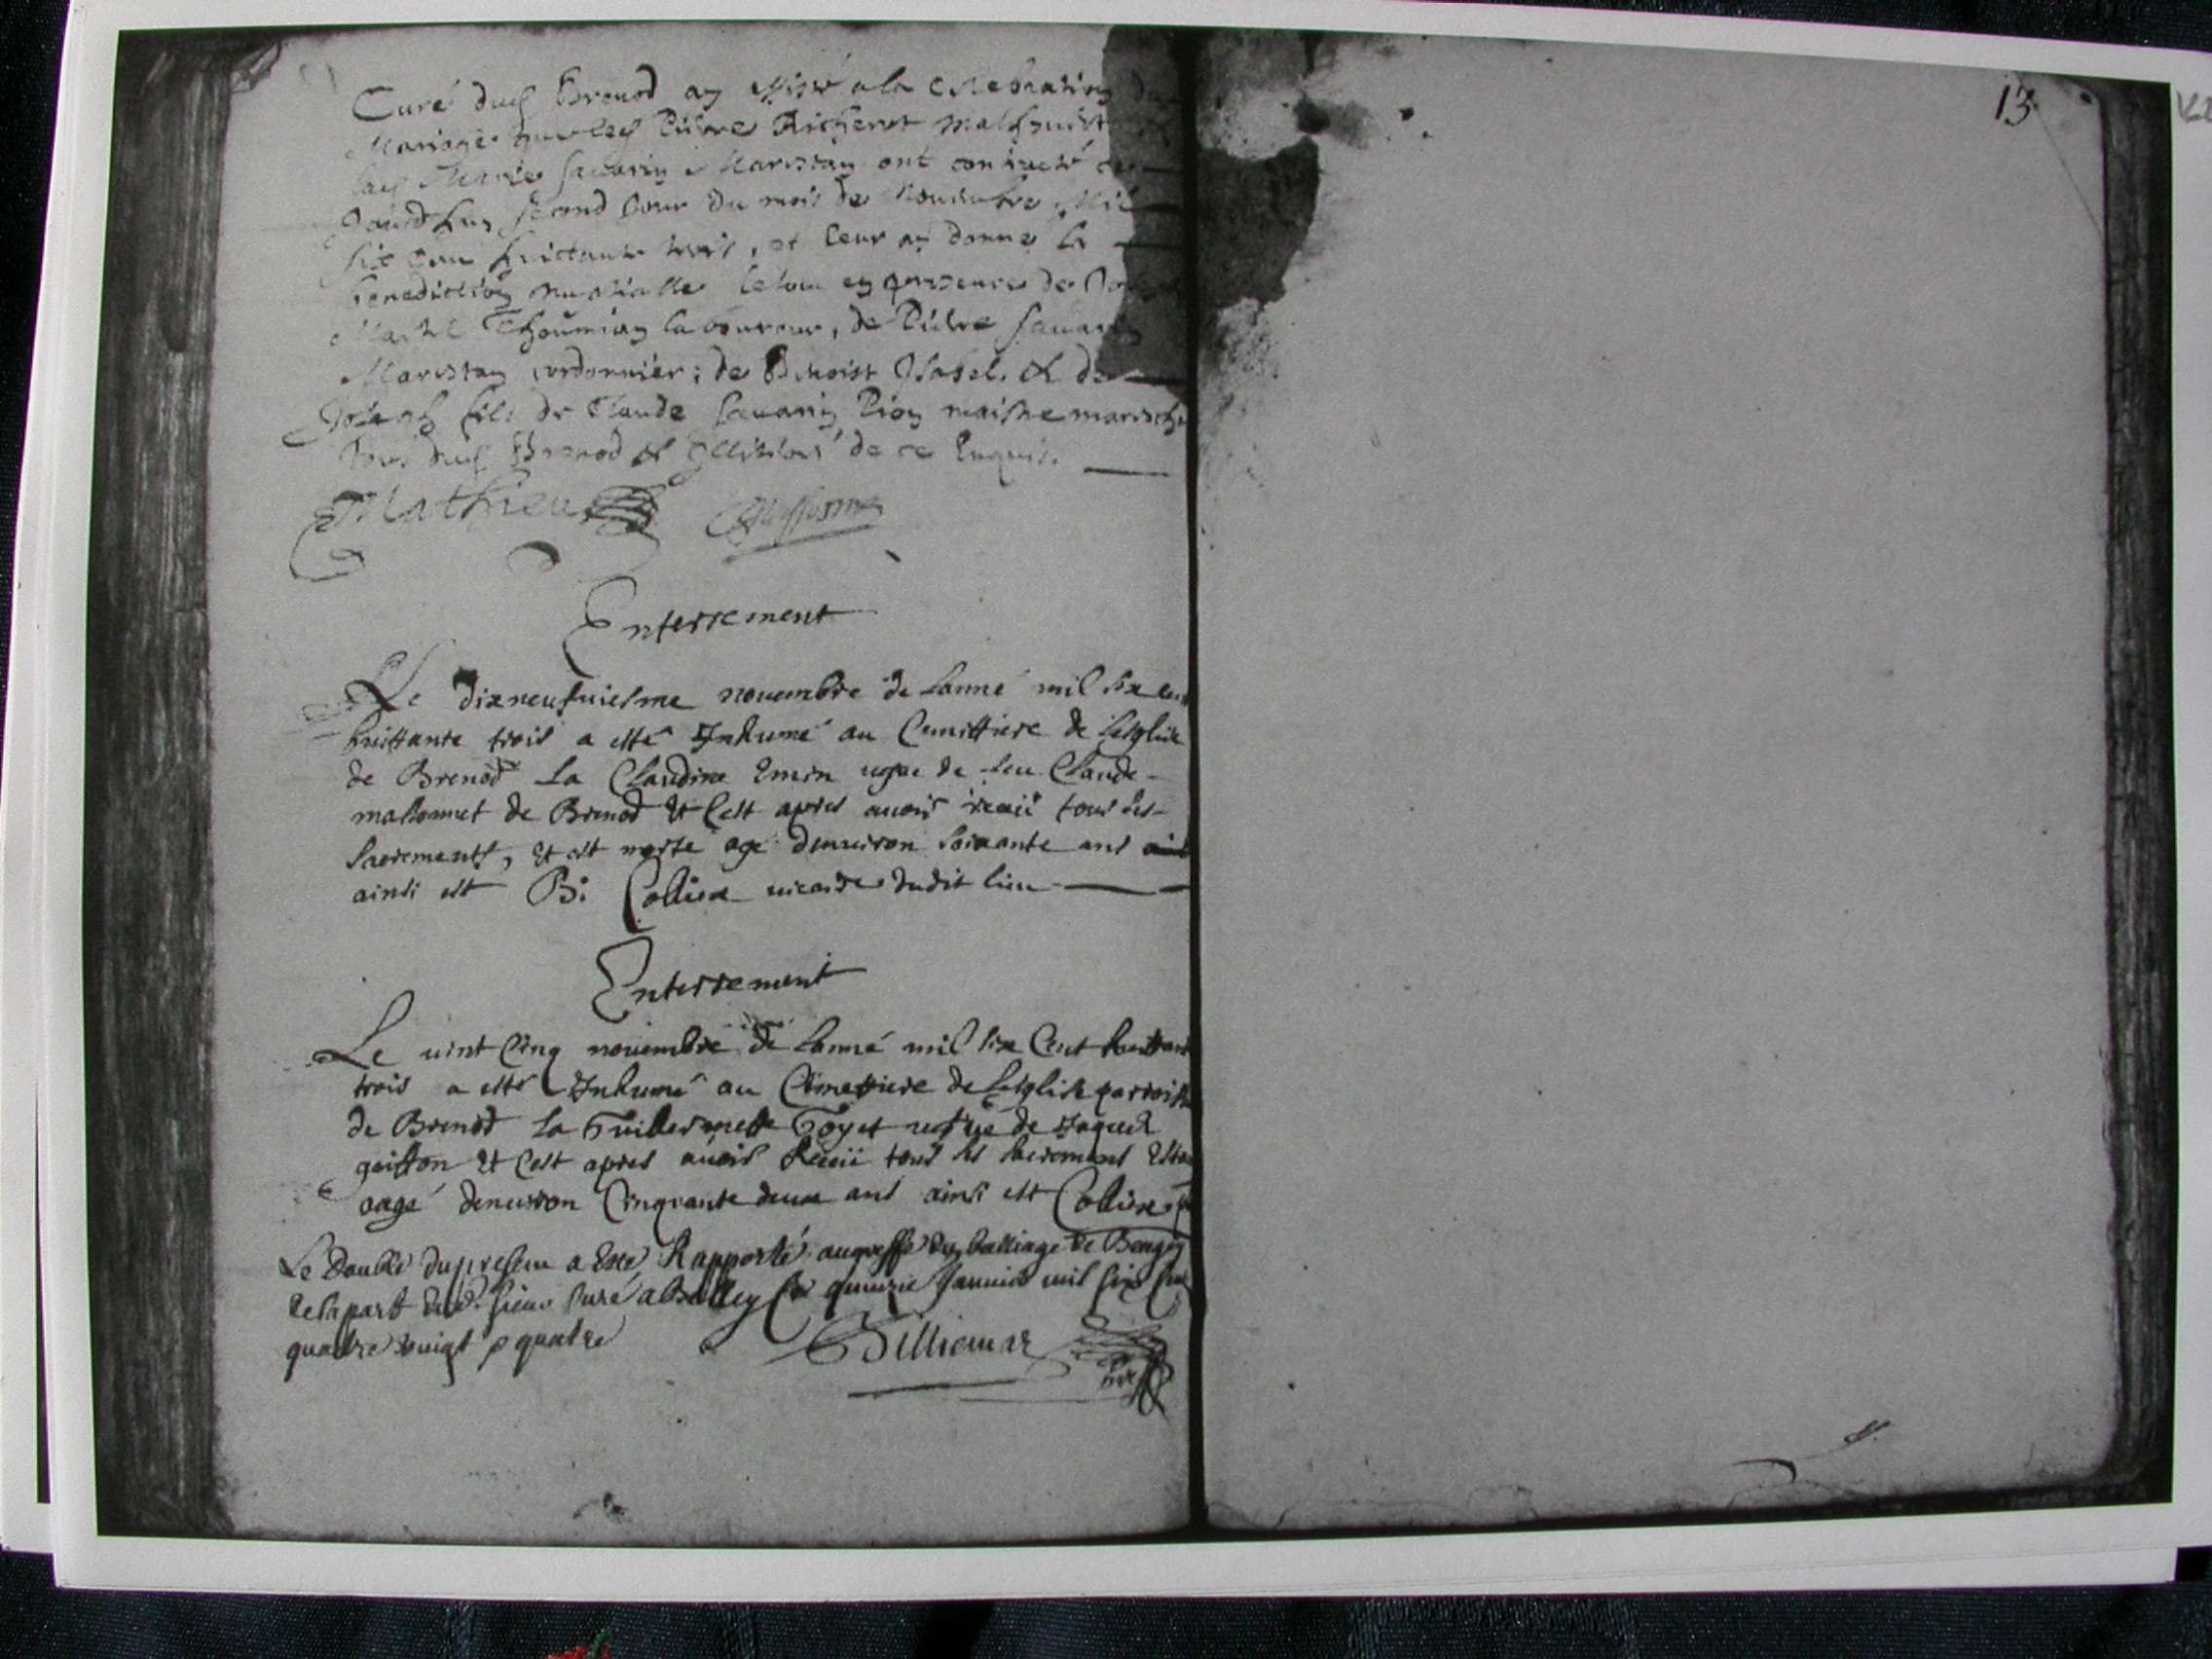 13
Curé dud Brenod ay assisté a la celebration du
Mariage que led Pierre Richerot
lad Marie Savarin Marestan ont contracté ce
second jour du mois de Novembre Mil
six cen huittante trois, et leur ay donné la
benediction nuptialle le tout en presence de
Thoumian laboureur, de Pierre Savarin
Marestan cordonnier; de Benoist & de
Joseph fils de Claude Savarin Pion maistre maresch
tous dud Brenod & de ce Enquis.
Mathieu
Enterrement
Le dixneufuiesme nouembre de lanné mil six cen
huittante trois a esté Inhumé au Cemittiere de leglise
de Brenod La Claudine Emin de feu Claude
de Brenod Et cest apres auoir receü tous les
sacrements, Et est morte agé denuiron soixante ans
ainsi est B: Collier uicaire dudit lieu
Enterrement
Le uint Cinq nouembre de lanné mil six Cent huittante
trois a esté Inhumé au Cimettiere de leglise parroiss
de Brenod La Guillermette Goyet de Jaques
Et cest apres auoir Receü tous les sacrements Estan
aagé denuiron Cinquante deux ans ainsi est Collier
Le Double du presen a Esté Rapporté au greffe du balliage de Beugey
de la part dud. sieur Curé a Belley ce quinzie Januier mil six cen
quatre uingt & quatre Billiemaz